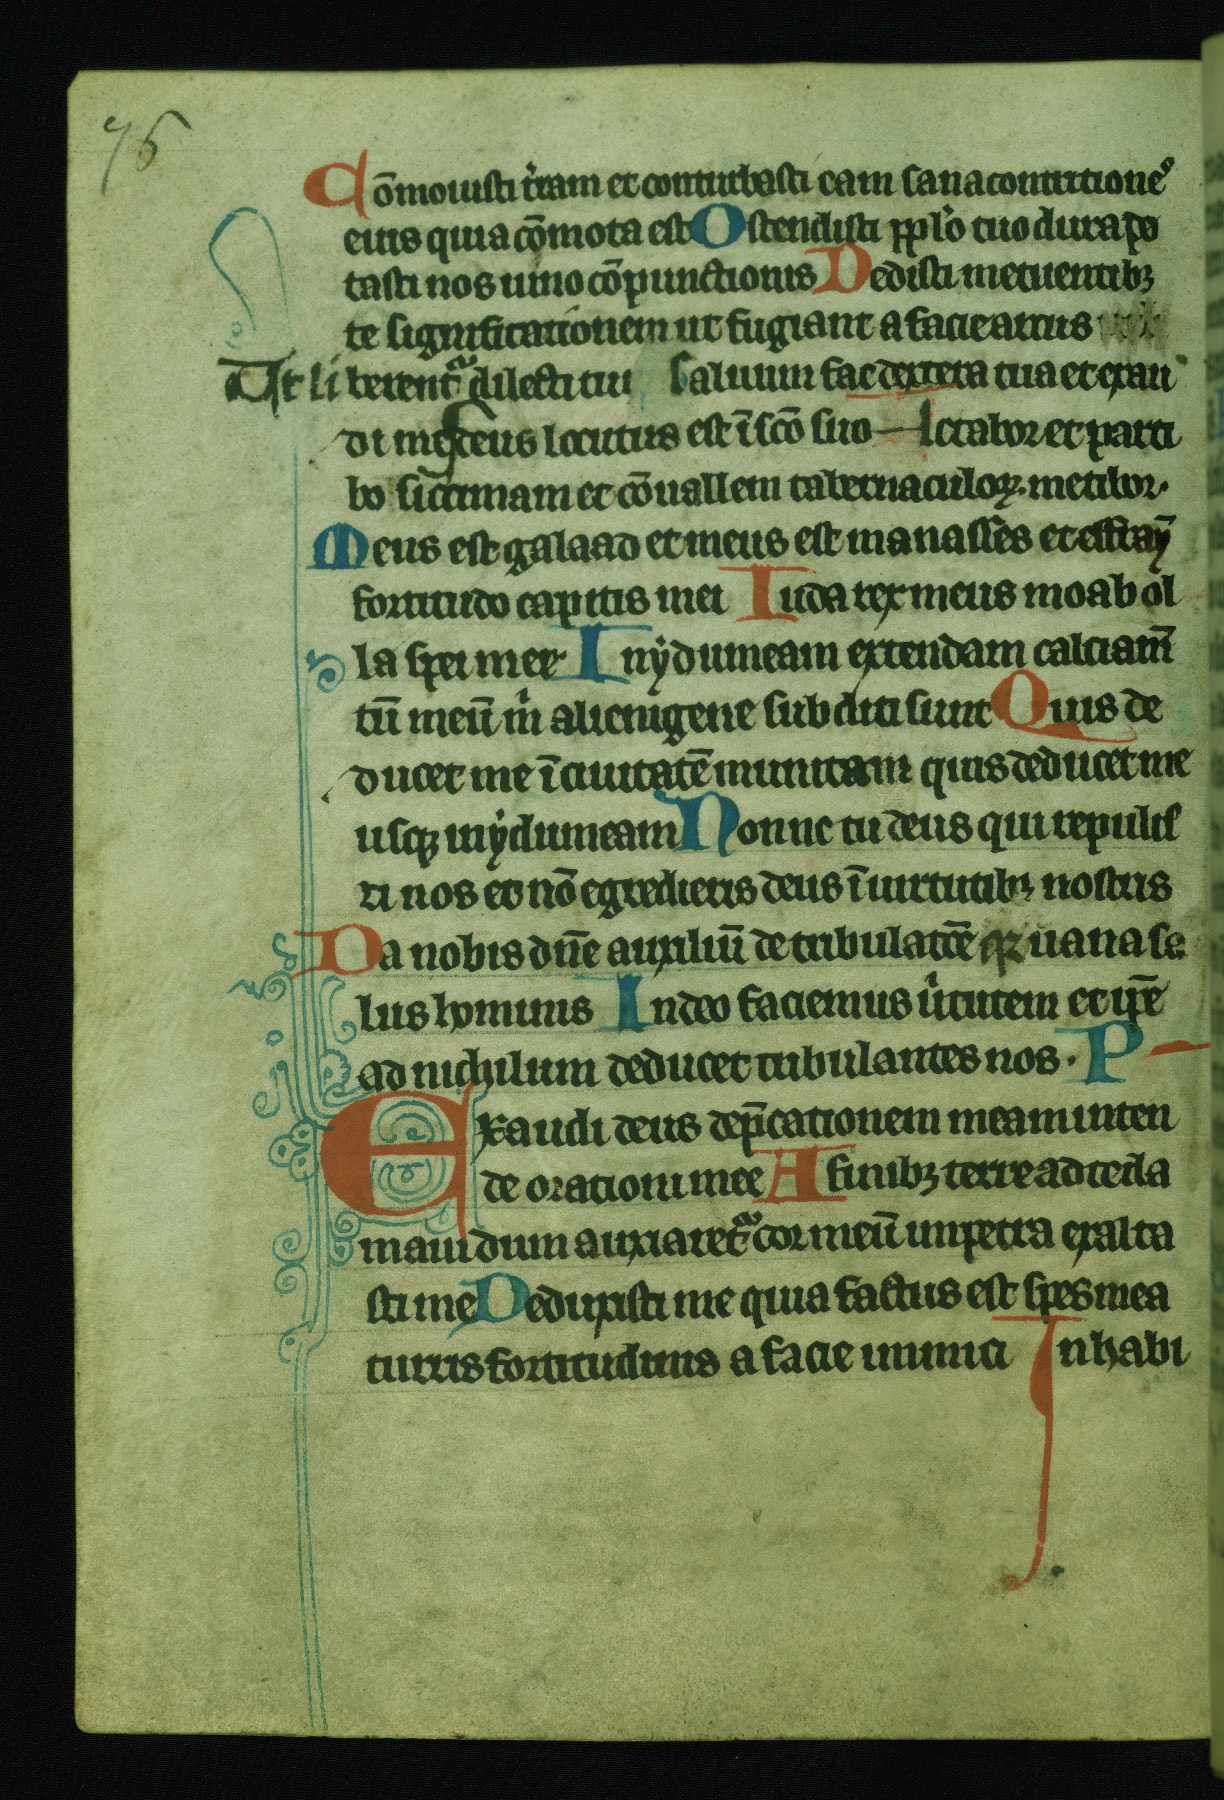 76
Cōmouisti t̄ram et conturbasti eam sana contritione᷒
eius quia cōmota est Ostendisti pplo tuo dura po
tasti nos uino cōpunctionis Dedisti metuentibꝫ
te significationem ut fugiant a facie arcus
Ut li berent᷑ dilecti tui Saluum fac dextera tua et exau
di me Deus locutus est ī sc̄o suo letabor et parti
bo siccimam et cōuallem tabernaculoꝝ metibor.
Meus est galaad et meus est manasses et effraȳ
fortitudo capitis mei Iuda rex meus moab ol
la spei mee Inẏdumeam extendam calciam̄
tū meū m̄ alienigene subditi sunt Quis de
ducet me ī ciuitatē munitam quis deducet me
usqꝫ inẏdumeam Nonne tu deus qui repulis
ti nos et nō egredieris deus ī uirtutibꝫ nostris
Da nobis dn̄e auxiliū de tribulatōe qꝛ uana sa
lus hominis In deo faciemus ūtutem et ip̄e
ad nichilum deducet tribulantes nos. P
Exaudi deus dep̄cationem meam inten
de orationi mee A finibꝫ terre ad te cla
maui dum anxiaret᷑ cor meū in petra exalta
sti me Deduxisti me quia factus est spes mea
turris fortitudinis a facie inimici Inhabi